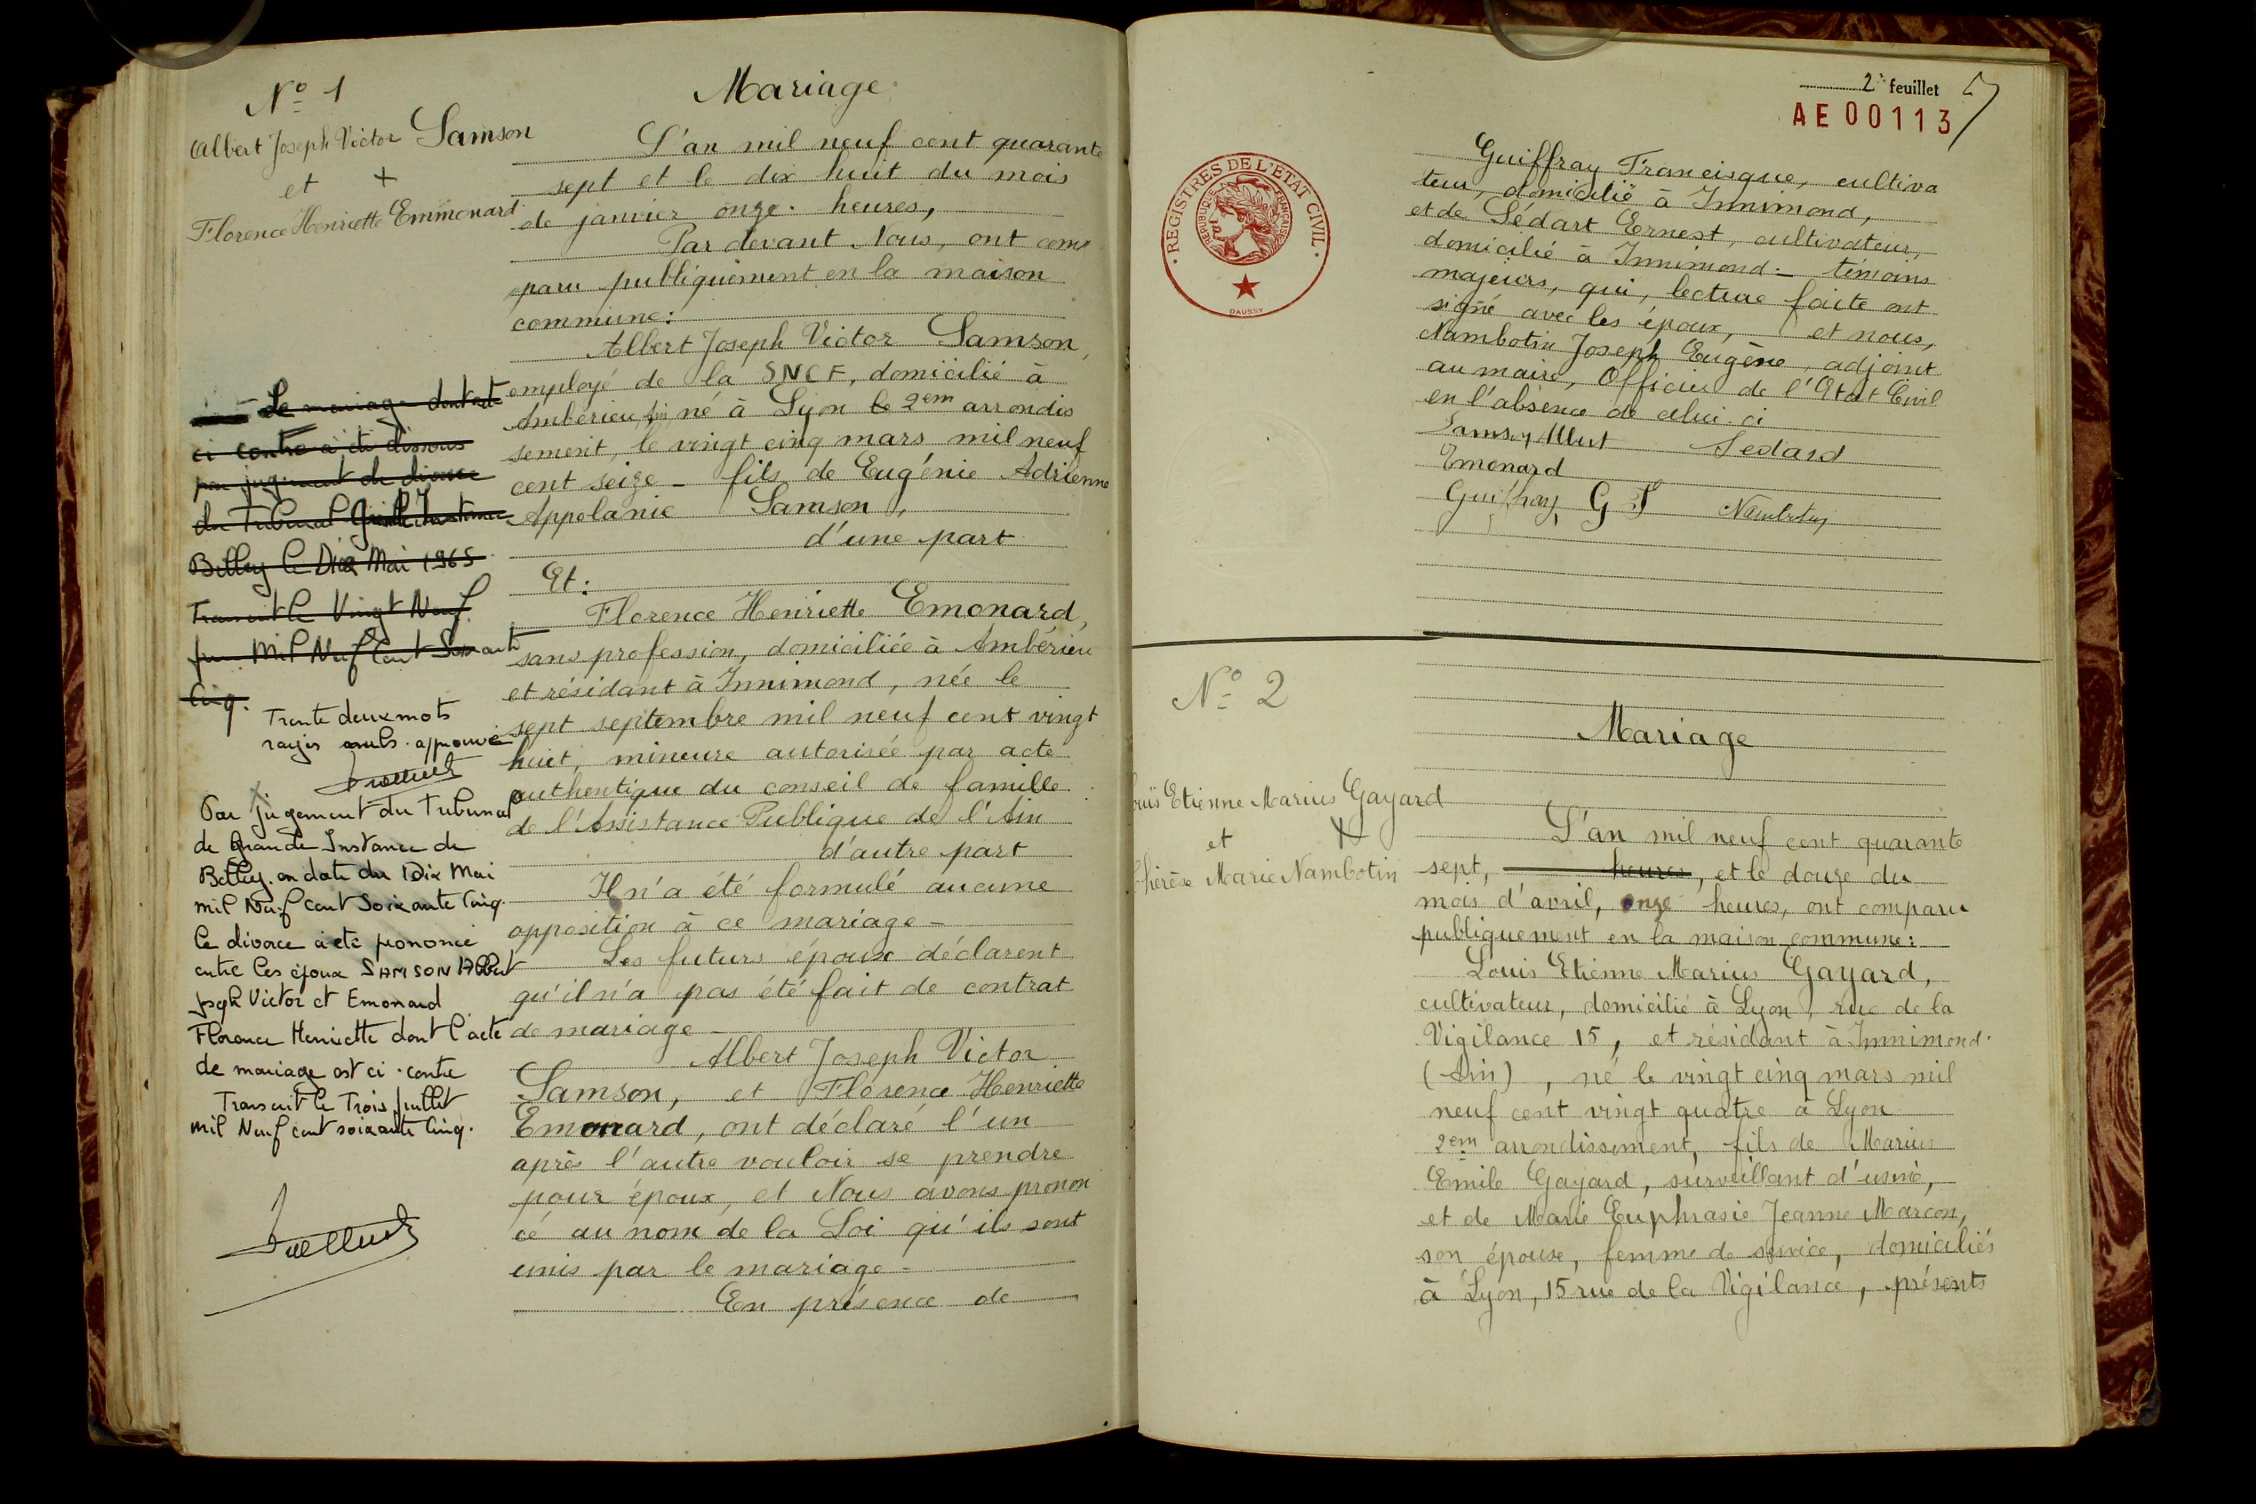 Nº 1
Albert Joseph Victor Samson
et
Florence Henriette Emmonard
Le mariage dont acte
ci contre a été dissous
par jugement de divorce
du Tribunal Grande Instance
Belley le Dix Mai 1965
Transcrit le Vingt Neuf
Mil Neuf Cent Soixante
Cinq.
Trente deux mots
rayés nuls. approuvé
Par jugement du Tribunal
de Grande Instance de
Belley en date du Dix Mai
mil Neuf cent Soixante Cinq.
le divorce a été prononcé
entre les époux SAMSON Albert
Joseph Victor et Emonard
Florence Henriette dont l'acte
de mariage est ci-contre
Transcrit le Trois Juillet
mil Neuf cent soixante Cinq.
Mariage
L'an mil neuf cent quarante
sept et le dix huit du mois
de janvier onze heures,
Par devant Nous, ont com
paru publiquement en la maison
commune:
Albert Joseph Victor Samson,
employé de la SNCF, domicilié à
Ambérieu, né à Lyon le 2em arrondis
sement, le vingt cinq mars mil neuf
cent seize - fils de Eugénie Adrienne
Appolanie Samson,
d'une part
Et:
Florence Henriette Emonard,
sans profession, domiciliée à Ambérieu
et résidant à Innimond, née le
sept septembre mil neuf cent vingt
huit, mineure autorisée par acte
authentique du conseil de famille
de l'Assistance Publique de l'Ain
d'autre part
Il n'a été formulé aucune
opposition à ce mariage -
Les futurs époux déclarent
qu'il n'a pas été fait de contrat
de mariage -
Albert Joseph Victor
Samson, et Florence Henriette
Emonard, ont déclaré l'un
après l'autre vouloir se prendre
pour époux, et Nous avons pronon
cé au nom de la Loi qu'ils sont
unis par le mariage -
En présence de
2è feuillet
AE00113
REGISTRES DE L'ETAT CIVIL
REPUBLIQUE FRANÇAISE
DAUSSY
Guiffray Francisque, cultiva
teur, domicilié à Innimond,
et de Sédart Ernest, cultivateur,
domicilié à Innimond - témoins
majeurs, qui, lecture faite ont
signé avec les époux, et nous,
Nambotin Joseph Eugène, adjoint
au maire, Officier de l'Etat Civil
en l'absence de celui-ci
Samson Albert Sedard
Emonard
Guiffray G F Nambotin
Nº 2
Louis Etienne Marius Gayard
et
Thérèse Marie Nambotin
Mariage
L'an mil neuf cent quarante
sept, heures, et le douze du
mois d'avril, onze heures, ont comparu
publiquement en la maison commune:
Louis Etienne Marius Gayard,
cultivateur, domicilié à Lyon, rue de la
Vigilance 15, et résidant à Innimond.
(Ain), né le vingt cinq mars mil
neuf cent vingt quatre à Lyon
2em arrondissement, fils de Marius
Emile Gayard, surveillant d'usine,
et de Marie Euphrasie Jeanne Marcon,
son épouse, femme de service, domiciliés
à Lyon, 15 rue de la Vigilance, présents